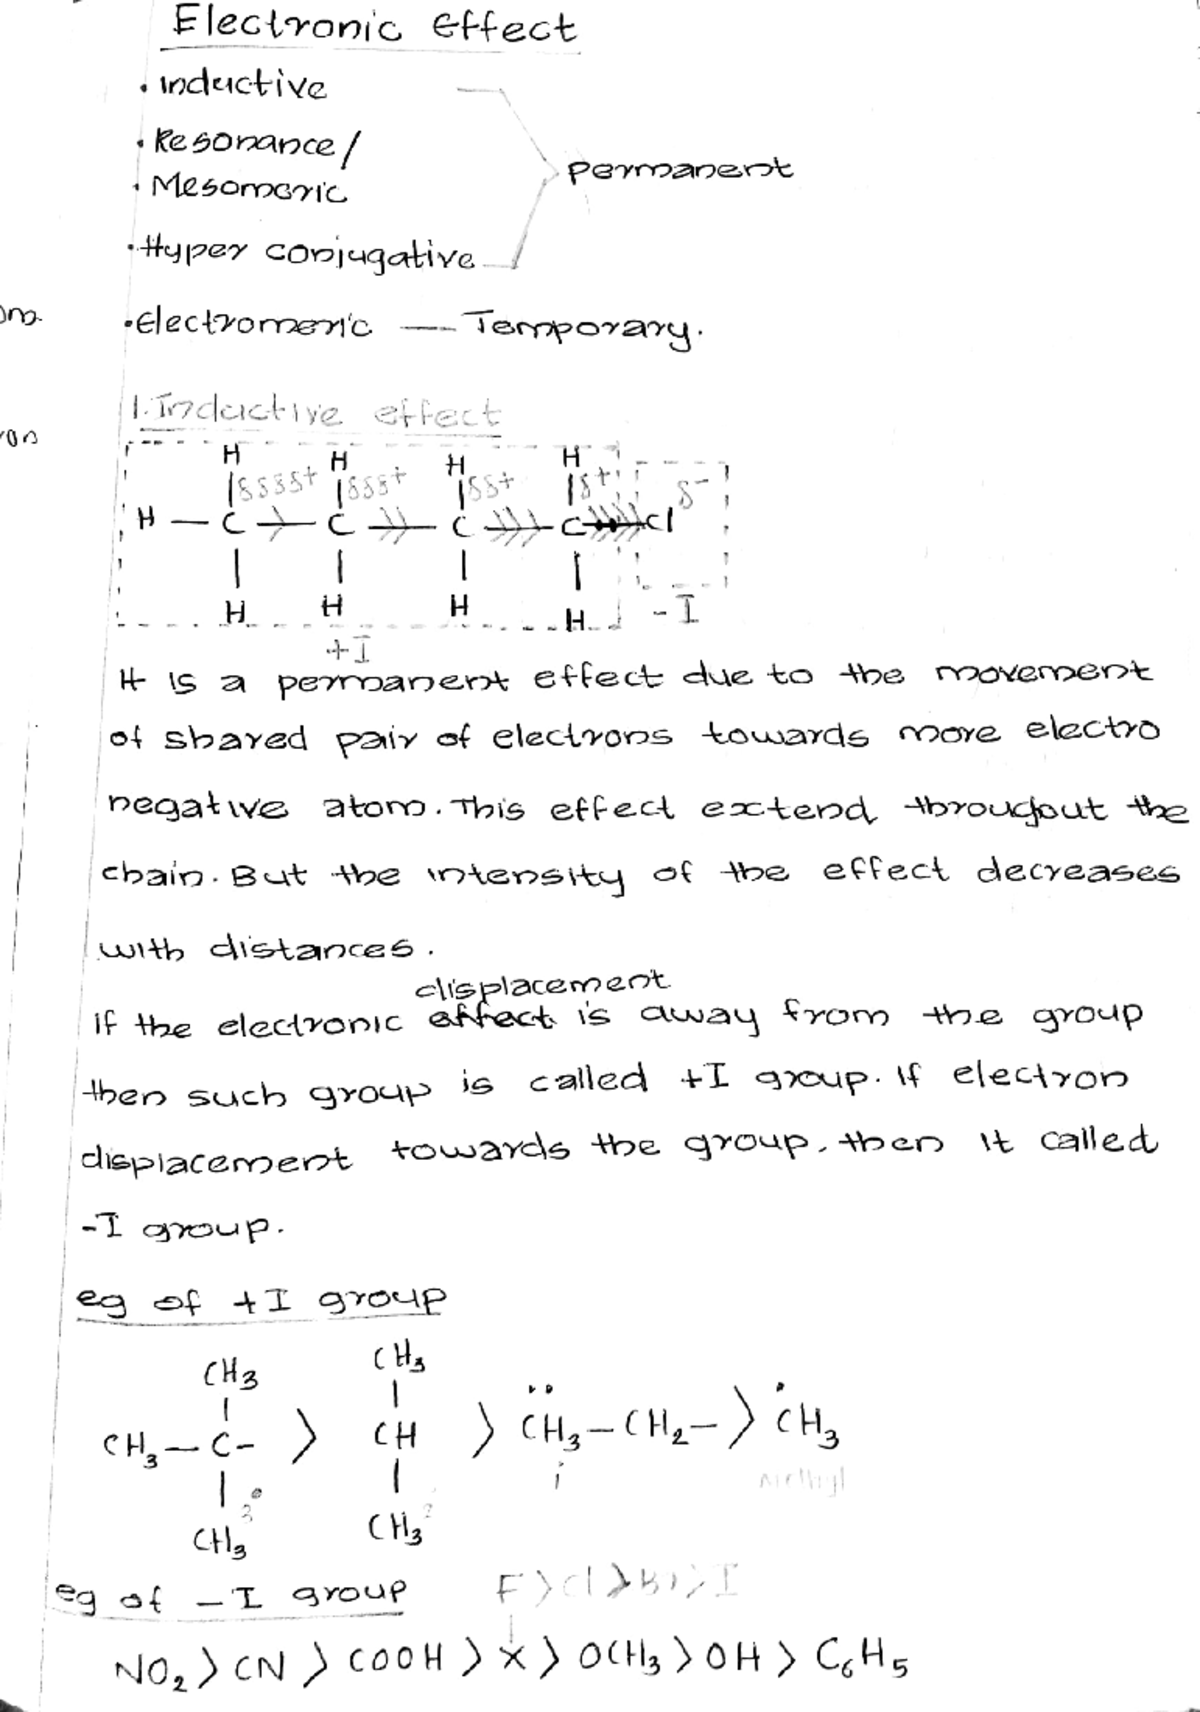 Electronic effect
• inductive
• Resonance/
• Mesomeric
permanent
• Hyper conjugative
ons.
• Electromeric — Temporary.
1. Inductive effect
ion
H H H H
δδδδ+ δδδ+ δδ+ δ+ δ-
H — C — C — C — C — Cl
H H H H - I
+I
It is a permanent effect due to the movement
of shared pair of electrons towards more electro
negative atom. This effect extend througout the
chain. But the intensity of the effect decreases
with distances.
displacement
if the electronic effect is away from the group
then such group is called +I group. If electron
displacement towards the group, then it called
-I group.
eg of +I group
CH3 CH3
CH3 — C- > CH > CH3 — CH2 — > CH3
methyl
CH3 CH3
eg of - I group F > Cl > Br > I
NO2 > CN > COOH > X > OCH3 > OH > C6H5